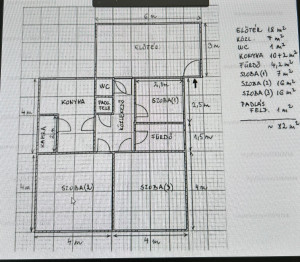 6 m
ELŐTÉR
3 m
WC
KONYHA
PADL. FELJ.
KÖZLEKEDŐ
SZOBA(1)
2,5m
4 m
KAMRA
FÜRDŐ
1,5m
SZOBA(2)
SZOBA(3)
4 m
4 m
4 m
4 m
ELŐTÉR 18 m²
KÖZL. 7 m²
WC 1 m²
KONYHA 10+2 m²
FÜRDŐ 4,2 m²
SZOBA(1) 7 m²
SZOBA(2) 16 m²
SZOBA(3) 16 m²
PADLÁS
FELJ. 1 m²
~ 82 m²